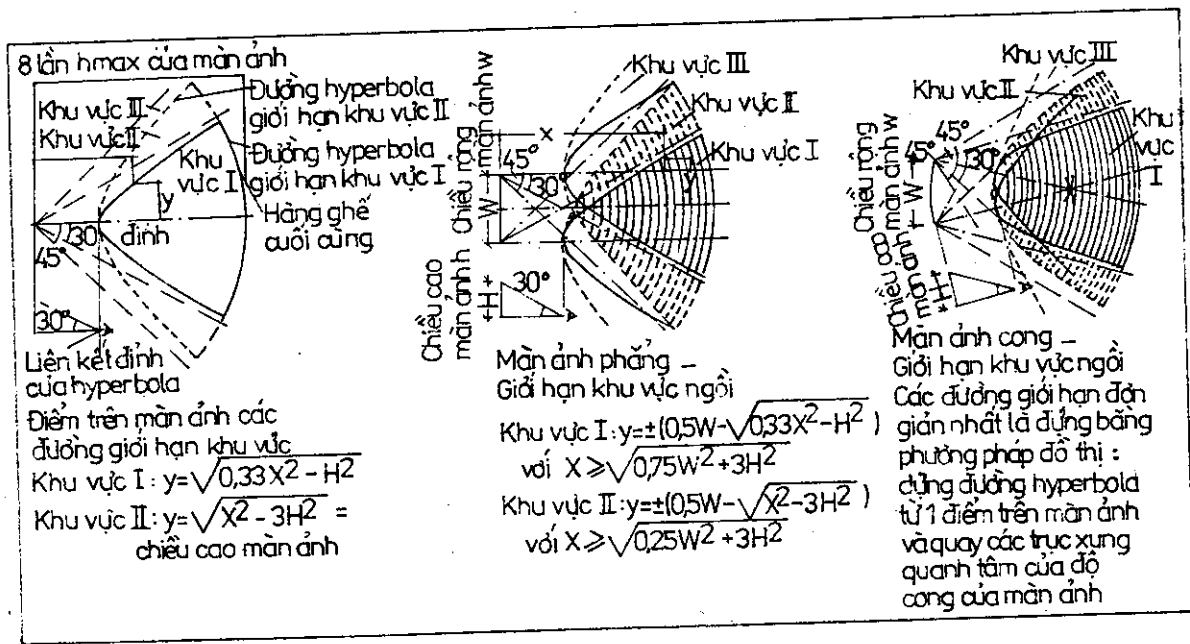 8 lần hmax của màn ảnh
Khu vực III
Khu vực II
Khu
vực I
Đường hyperbola
giới hạn khu vực II
Đường hyperbola
giới hạn khu vực I
Hàng ghế
cuối cùng
y
30
đỉnh
45°
30°
Liên kết đỉnh
của hyperbola
Điểm trên màn ảnh các
đường giới hạn khu vực
Khu vực I: y=√0,33X² - H²
Khu vực II: y=√X² - 3H² =
chiều cao màn ảnh
Khu vực III
Khu vực II
Khu vực I
x
y
45°
30°
W
Chiều rộng
màn ảnh w
H
Chiều cao
màn ảnh h
30°
Màn ảnh phẳng –
Giới hạn khu vực ngồi
Khu vực I: y=±(0,5W-√0,33X²-H²)
với X ⩾ √0,75W²+3H²
Khu vực II: y=±(0,5W-√X²-3H²)
với X ⩾ √0,25W²+3H²
Khu vực III
Khu vực II
Khu
vực
I
45°
30°
W
Chiều rộng
màn ảnh w
H
Chiều cao
màn ảnh
Màn ảnh cong –
Giới hạn khu vực ngồi
Các đường giới hạn đơn
giản nhất là dựng bằng
phương pháp đồ thị :
dựng đường hyperbola
từ 1 điểm trên màn ảnh
và quay các trục xung
quanh tâm của độ
cong của màn ảnh